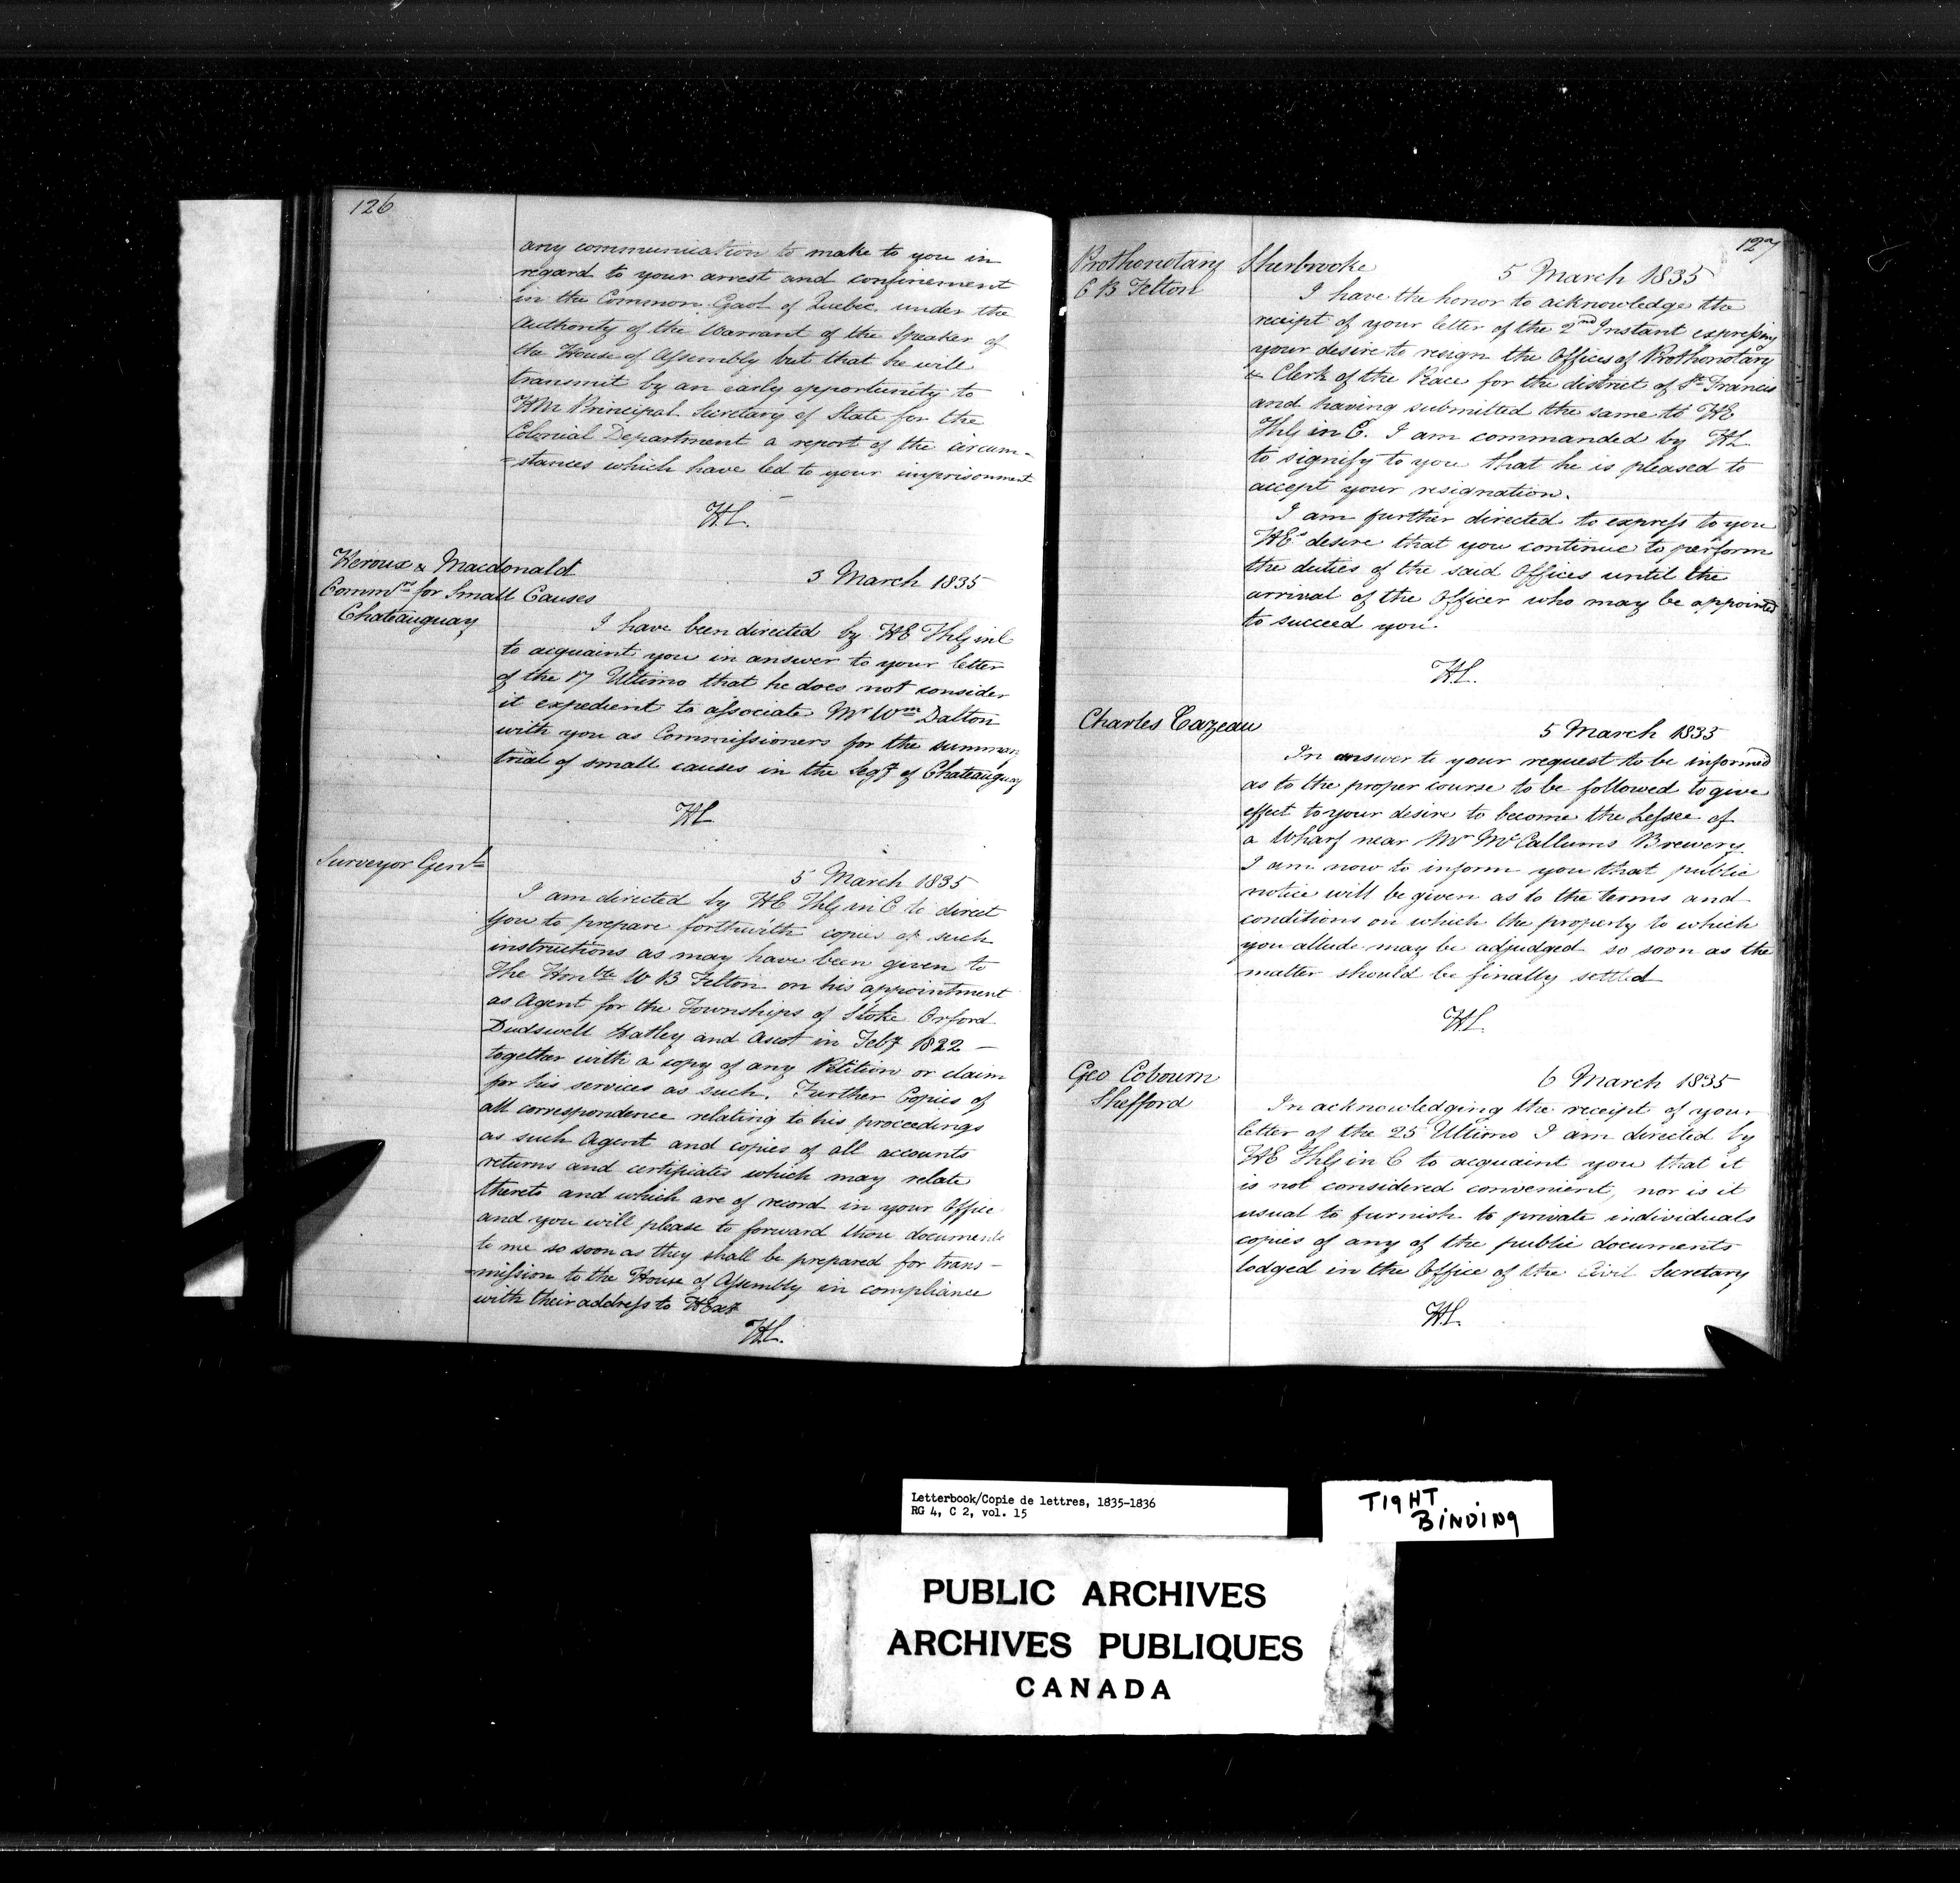 126
any communication to make to you in
regard to your arrest and confinement
in the Common Gaol of Quebec under the
Authority of the Warrant of the Speaker of
the House of Assembly but that he will
transmit by an early opportunity to
HM Principal Secretary of State for the
Colonial Department a report of the circum-
=stances which have led to your imprisonment
H.C.
Heroux & Macdonald
Commrs for Small Causes
Chateauguay
3 March 1835
I have been directed by HE
to acquaint you in answer to your letter
of the 17 Ultimo that he does not consider
it expedient to associate Mr Wm Dalton
with you as Commissioners for the summary
trial of small causes in the Segy of Chateauguay
HC
Surveyor Genl
5 March 1835
I am directed by HE in C to direct
you to prepare forthwith copies of such
instructions as may have been given to
The Honble W B Felton on his appointment
as Agent for the Townships of Stoke Orford
Dudswell Hatley and Ascot in Feby 1822 —
together with a copy of any Petition or claim
for his services as such. Further Copies of
all correspondence relating to his proceedings
as such Agent and copies of all accounts
returns and certificates which may relate
thereto and which are of record in your Office
and you will please to forward those documents
to me so soon as they shall be prepared for trans-
=mission to the House of Assembly in compliance
with their address to HExy
H.C.
127
Prothonotary Sherbrooke
C B Felton
5 March 1835
I have the honor to acknowledge the
receipt of your letter of the 2nd Instant expressing
your desire to resign the Offices of Prothonotary
& Clerk of the Peace for the district of St Francis
and having submitted the same to HE
in C. I am commanded by HE
to signify to you that he is pleased to
accept your resignation.
I am further directed to express to you
HEs desire that you continue to perform
the duties of the said Offices until the
arrival of the Officer who may be appointed
to succeed you.
H.C.
Charles Cazeau
5 March 1835
In answer to your request to be informed
as to the proper course to be followed to give
effect to your desire to become the Lessee of
a Wharf near Mr McCallums Brewery.
I am now to inform you that public
notice will be given as to the terms and
conditions on which the property to which
you allude may be adjudged so soon as the
matter should be finally settled
H.C.
Geo Cobourn
Shefford
6 March 1835
In acknowledging the receipt of your
letter of the 25 Ultimo I am directed by
HE in C to acquaint you that it
is not considered convenient, nor is it
usual to furnish to private individuals
copies of any of the public documents
lodged in the Office of the Civil Secretary
H.C.
Letterbook/Copie de lettres, 1835-1836
RG 4, C 2, vol. 15
TIGHT
BINDING
PUBLIC ARCHIVES
ARCHIVES PUBLIQUES
CANADA